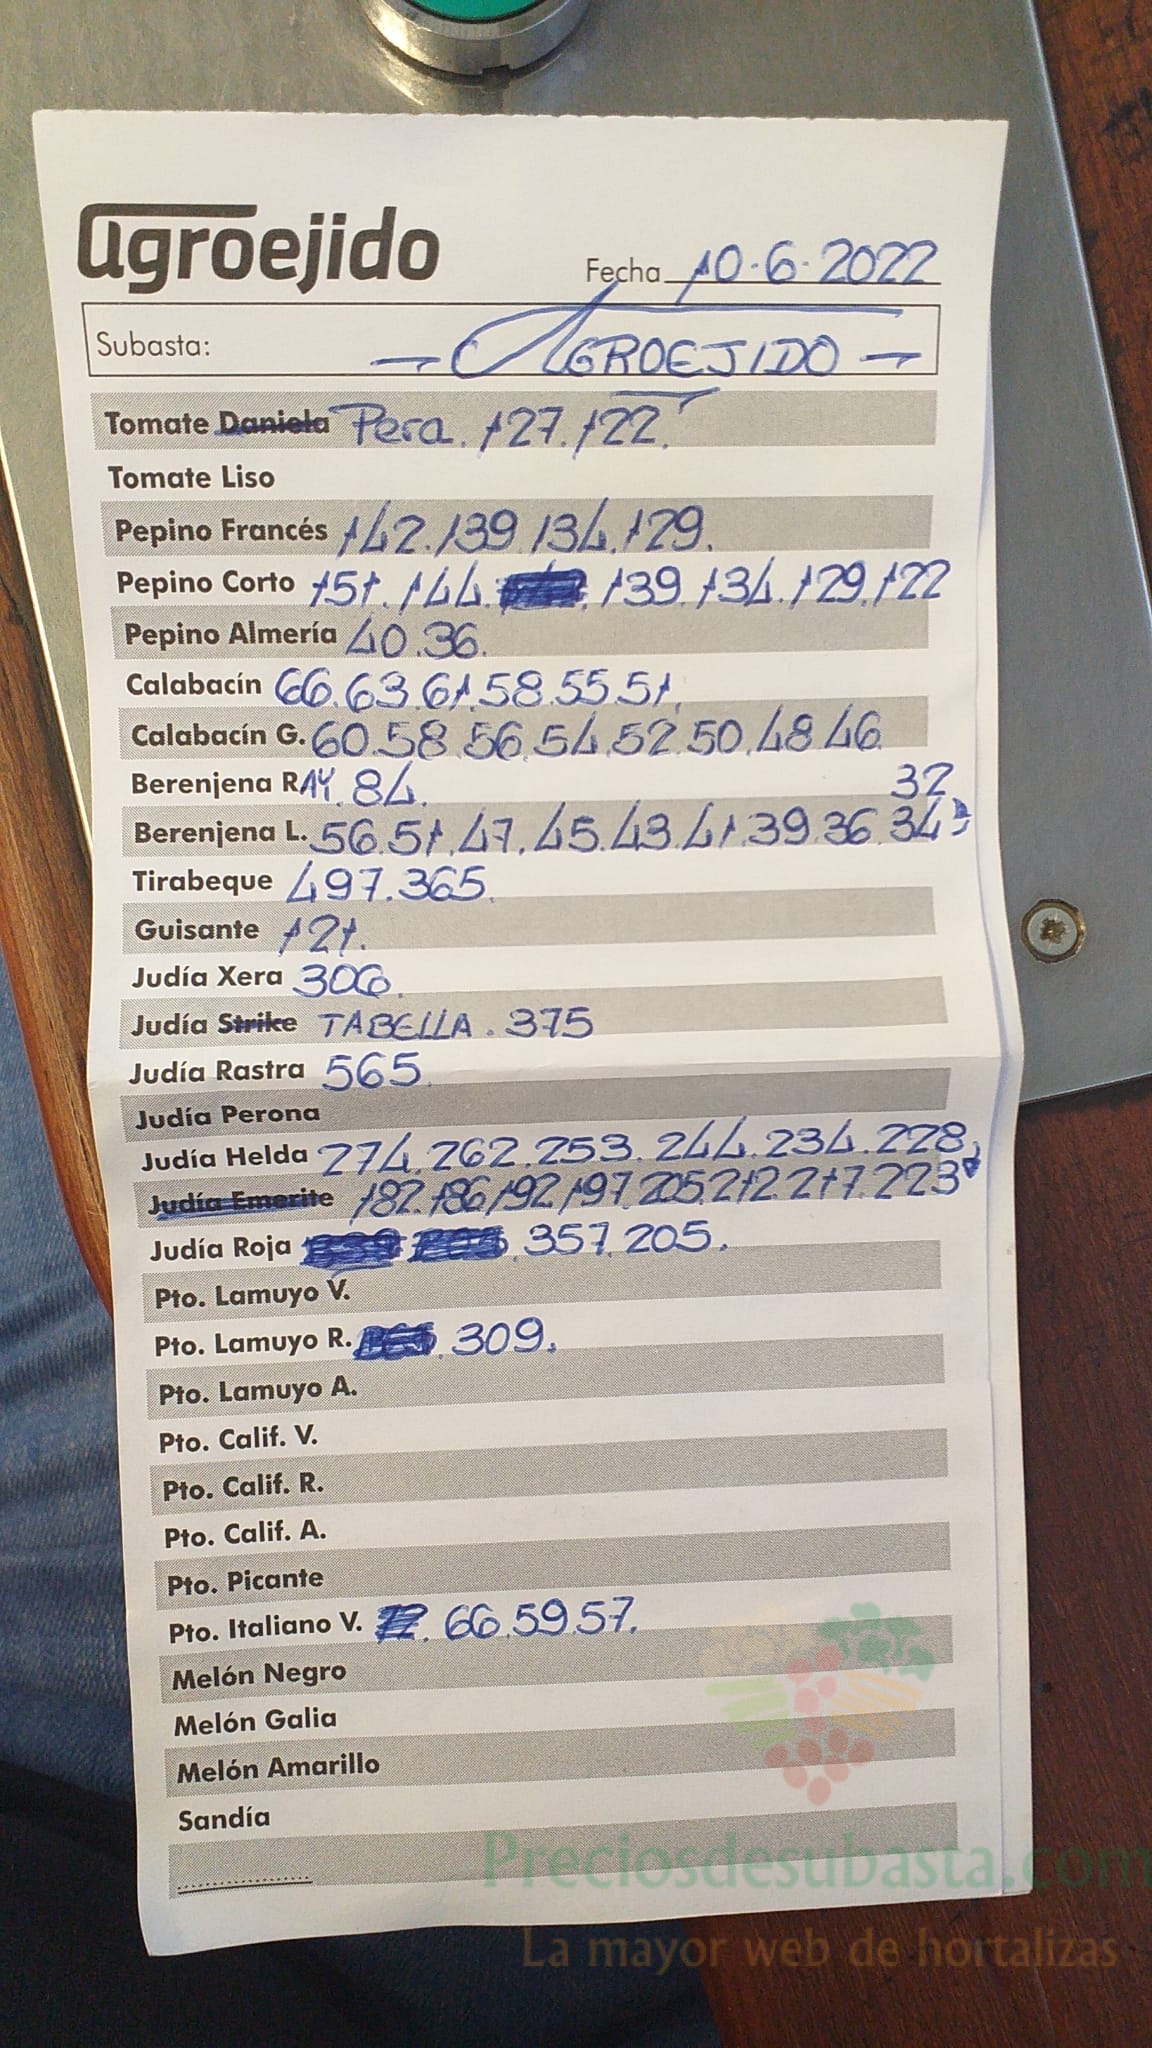 agroejido
Fecha 10.6.2022
Subasta: - AGROEJIDO -
Tomate Daniela Pera. 127.122.
Tomate Liso
Pepino Francés 142.139.134.129.
Pepino Corto 151.144. 139.134.129.122
Pepino Almería 40.36.
Calabacín 66.63.61.58.55.51.
Calabacín G. 60.58.56.54.52.50.48.46
Berenjena RAY. 84. 32
Berenjena L. 56.51.47.45.43.41.39.36.34
Tirabeque 497.365.
Guisante 121.
Judía Xera 306.
Judía Strike TABELLA. 375
Judía Rastra 565.
Judía Perona
Judía Helda 274.262.253.244.234.228
Judía Emerite 182.186.192.197.205.212.217.223
Judía Roja 357.205.
Pto. Lamuyo V.
Pto. Lamuyo R. 309.
Pto. Lamuyo A.
Pto. Calif. V.
Pto. Calif. R.
Pto. Calif. A.
Pto. Picante
Pto. Italiano V. 66.59.57.
Melón Negro
Melón Galia
Melón Amarillo
Sandía
Preciosdesubasta.com
La mayor web de hortalizas